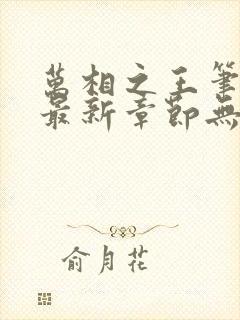 萬相之王筆
最新章節無
俞月花